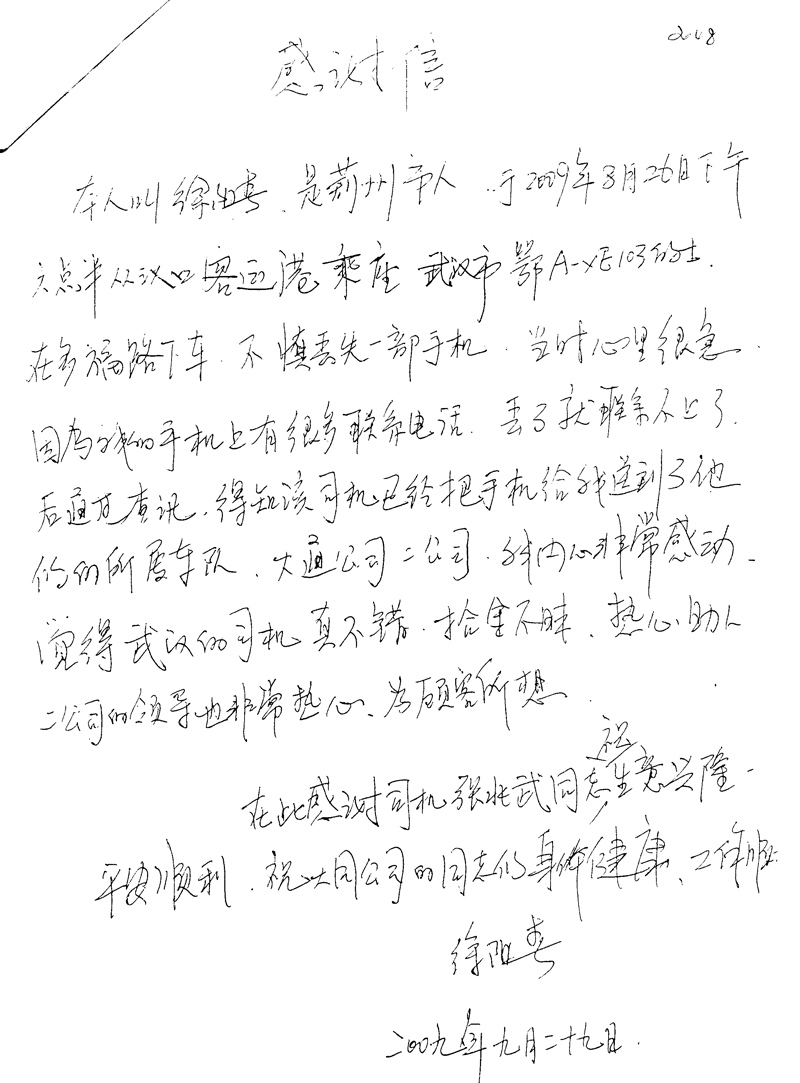 2018
感谢信
本人叫徐阳春、是荆州市人、于2009年8月26日下午
六点半从汉口客运港乘座武汉市鄂A-XE103的士.
在多福路下车.不慎丢失一部手机.当时心里很急.
因为我的手机上有很多联系电话.丢了就联系不上了.
后通过查讯.得知该司机已经把手机给我送到了他
们的所属车队、大通公司二公司.我内心非常感动.
觉得武汉的司机真不错.拾金不昧、热心助人
二公司的领导也非常热心、为顾客所想.
在此感谢司机张壮武同志祝生意兴隆-
平安顺利.祝大同公司的同志们身体健康、工作顺
徐阳春
二00九年九月二十九日.